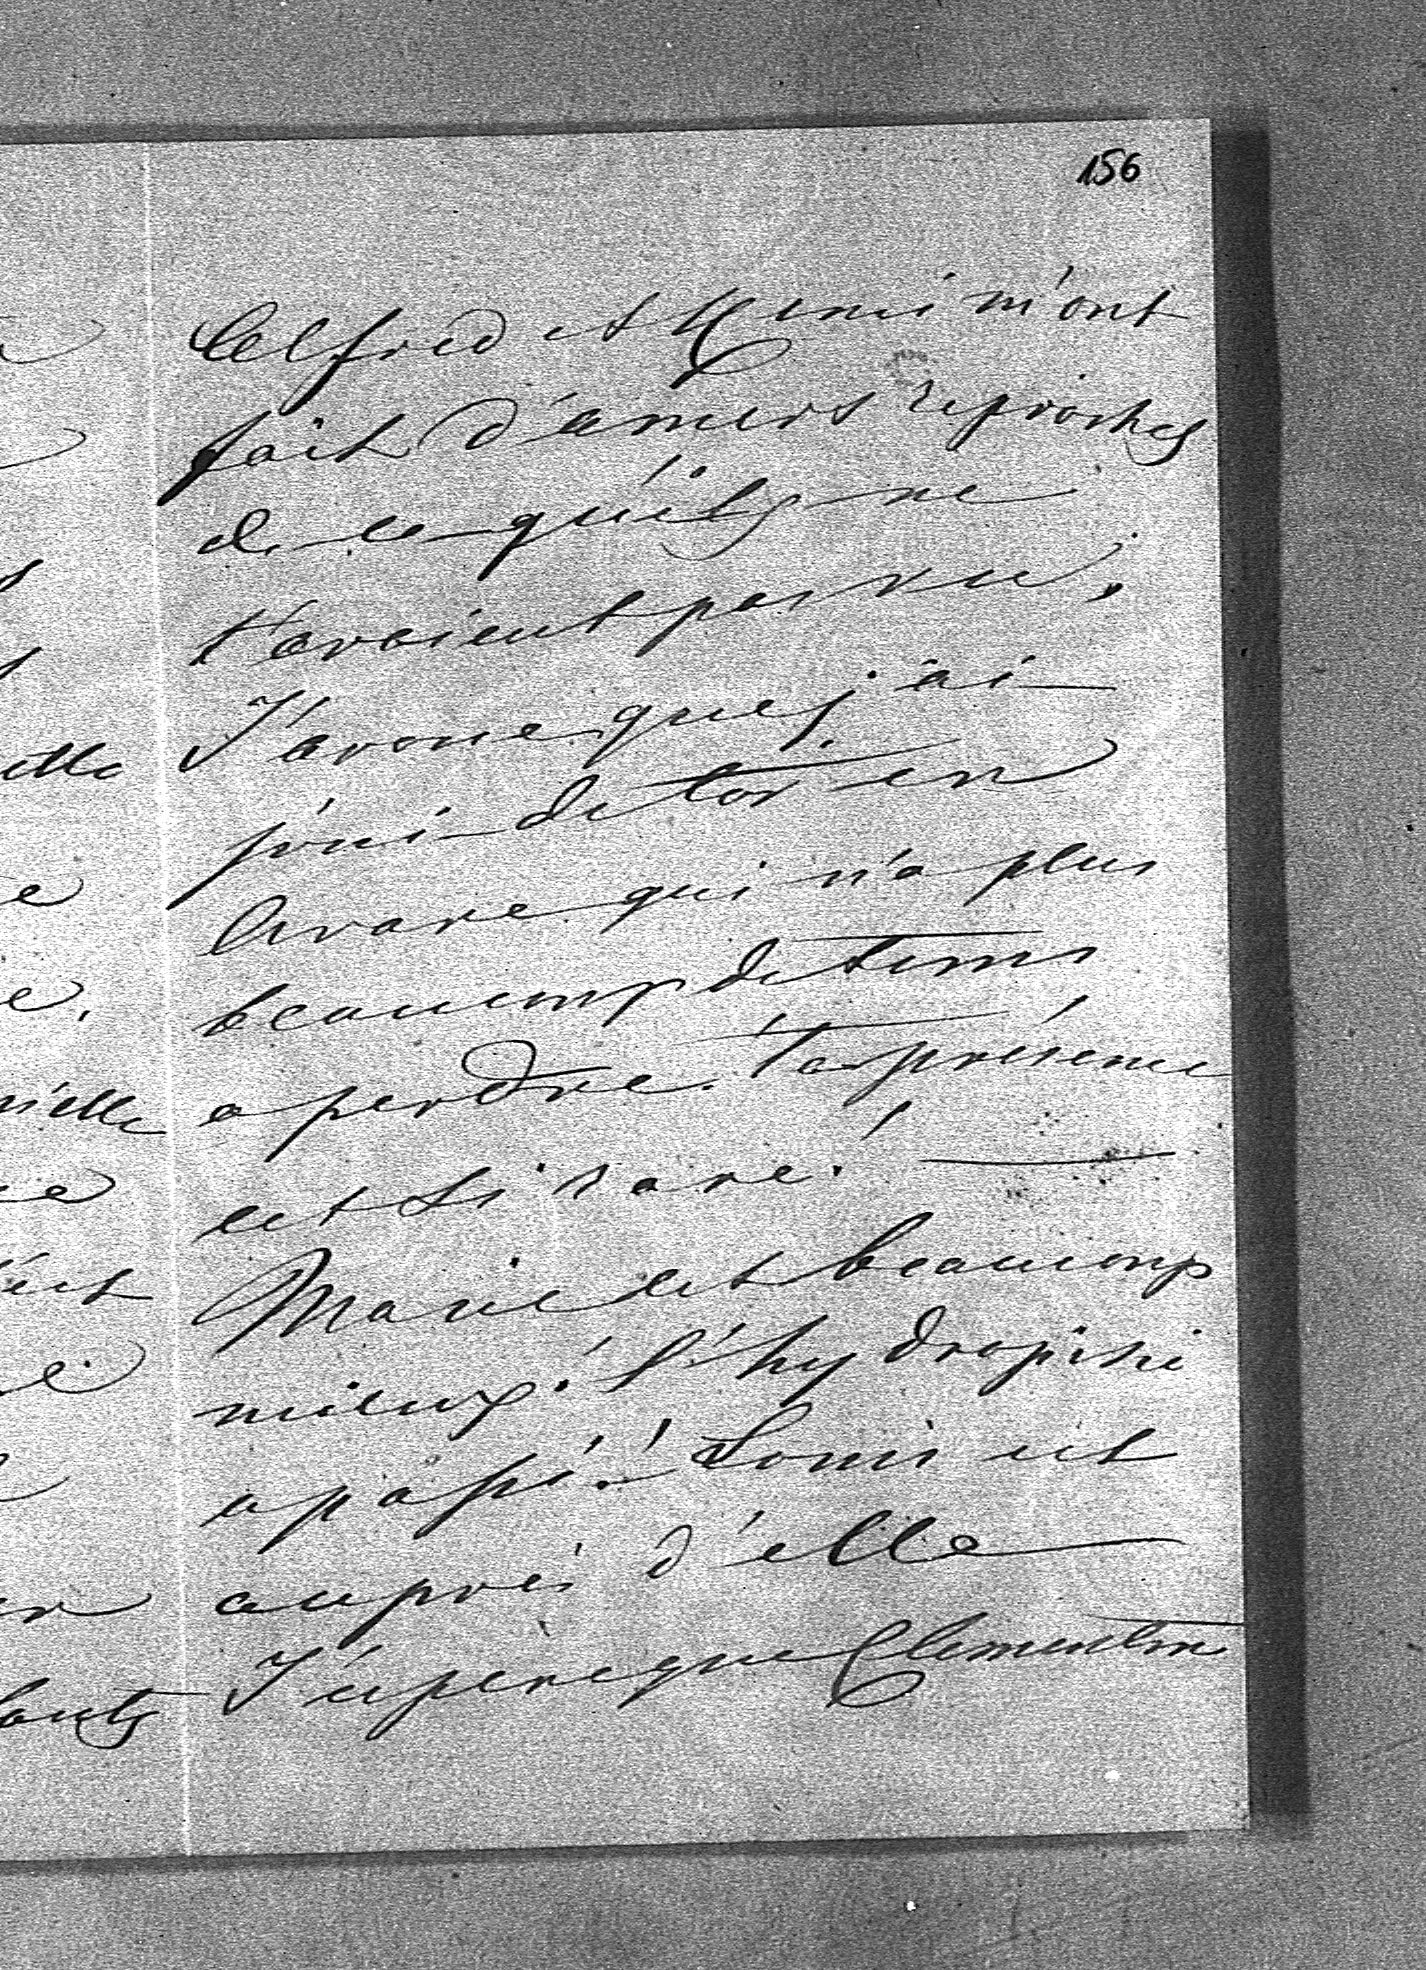 156
Alfred et Remi m'ont
fait d'amers reproches
de ce qu'ils ne
t'avaient pas vu,
J'avoue que j'ai
joui de toi en
avare qui n'a plus
beaucoup de tems
a perdre. ta présence
est si rare!
Marie est beaucoup
mieux. l'hydropisie
a passé! Louis est
auprès d'elle
J'espère que Clementine